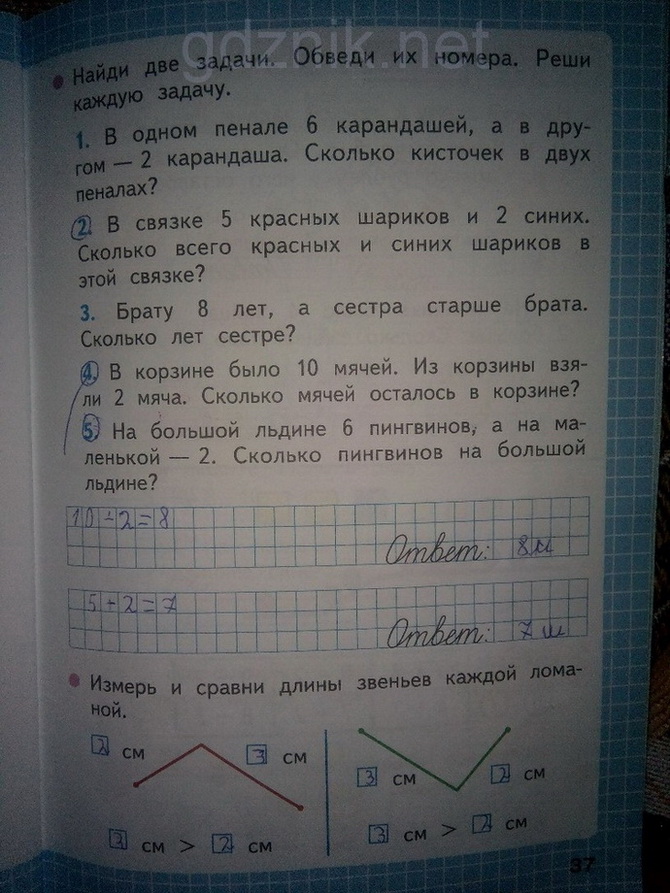 gdznik.net
Найди две задачи. Обведи их номера. Реши
каждую задачу.
1. В одном пенале 6 карандашей, а в дру-
гом — 2 карандаша. Сколько кисточек в двух
пеналах?
2. В связке 5 красных шариков и 2 синих.
Сколько всего красных и синих шариков в
этой связке?
3. Брату 8 лет, а сестра старше брата.
Сколько лет сестре?
4. В корзине было 10 мячей. Из корзины взя-
ли 2 мяча. Сколько мячей осталось в корзине?
5. На большой льдине 6 пингвинов, а на ма-
ленькой — 2. Сколько пингвинов на большой
льдине?
10-2=8
Ответ: 8м
5+2=7
Ответ: 7 ш
Измерь и сравни длины звеньев каждой лома-
ной.
2 см 3 см 3 см 2 см
3 см > 2 см 3 см > 2 см
37